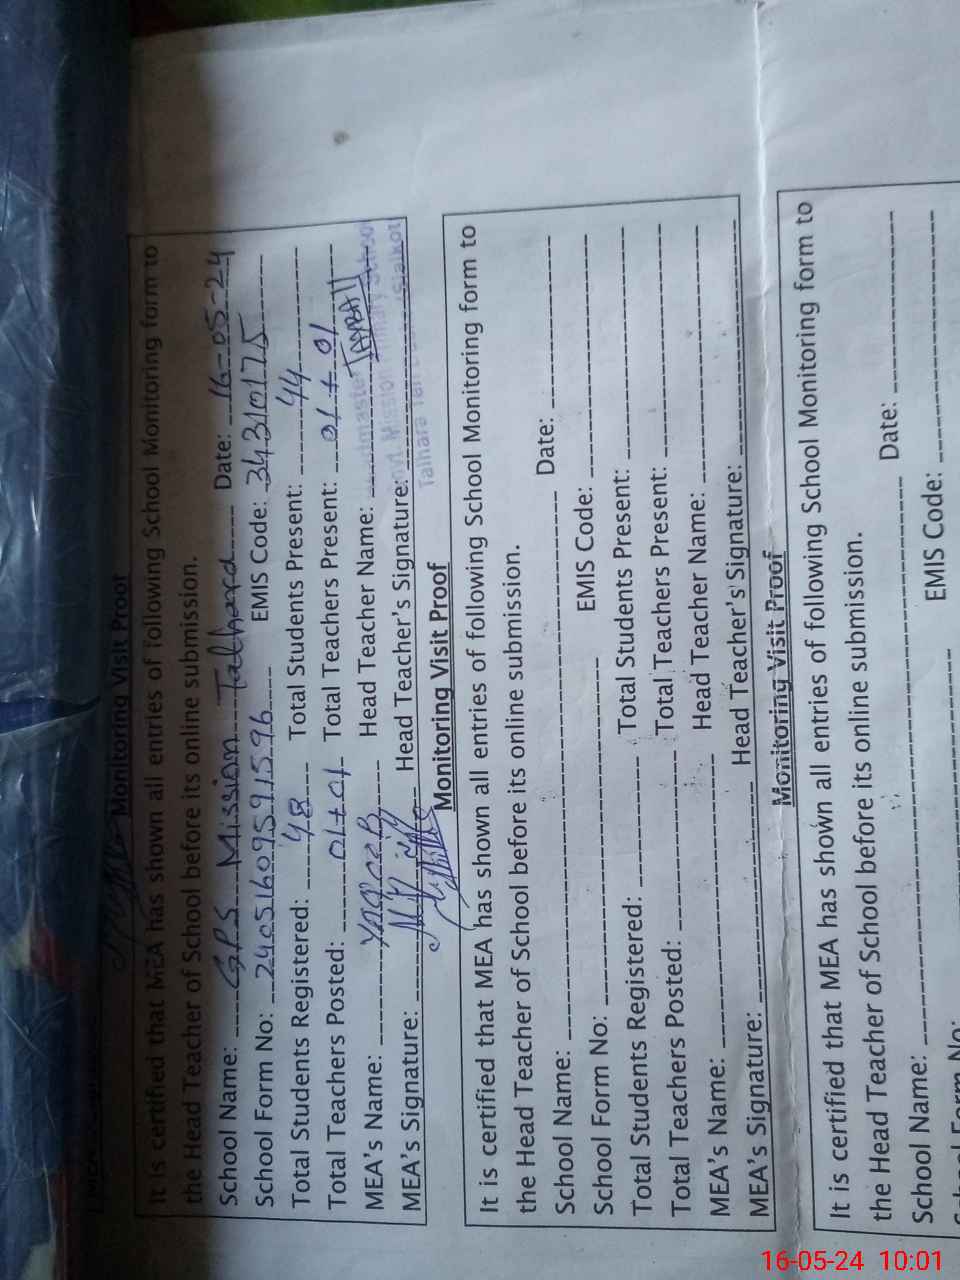 Monitoring Visit Proof
It is certified that MEA has shown all entries of following School Monitoring form to
the Head Teacher of School before its online submission.
School Name: GPS Mission Talhara Date: 16-05-24
School Form No: 240516095911596 EMIS Code: 34310175
Total Students Registered: 48 Total Students Present: 44
Total Teachers Posted: 01+01 Total Teachers Present: 01+01
MEA's Name: Head Teacher Name: TAYBAH
MEA's Signature: Head Teacher's Signature:
Mission
Talhara Sialkot
Monitoring Visit Proof
It is certified that MEA has shown all entries of following School Monitoring form to
the Head Teacher of School before its online submission.
School Name: Date:
School Form No: EMIS Code:
Total Students Registered: Total Students Present:
Total Teachers Posted: Total Teachers Present:
MEA's Name: Head Teacher Name:
MEA's Signature: Head Teacher's Signature:
Monitoring Visit Proof
It is certified that MEA has shown all entries of following School Monitoring form to
the Head Teacher of School before its online submission.
School Name: Date:
School Form No: EMIS Code:
16-05-24 10:01